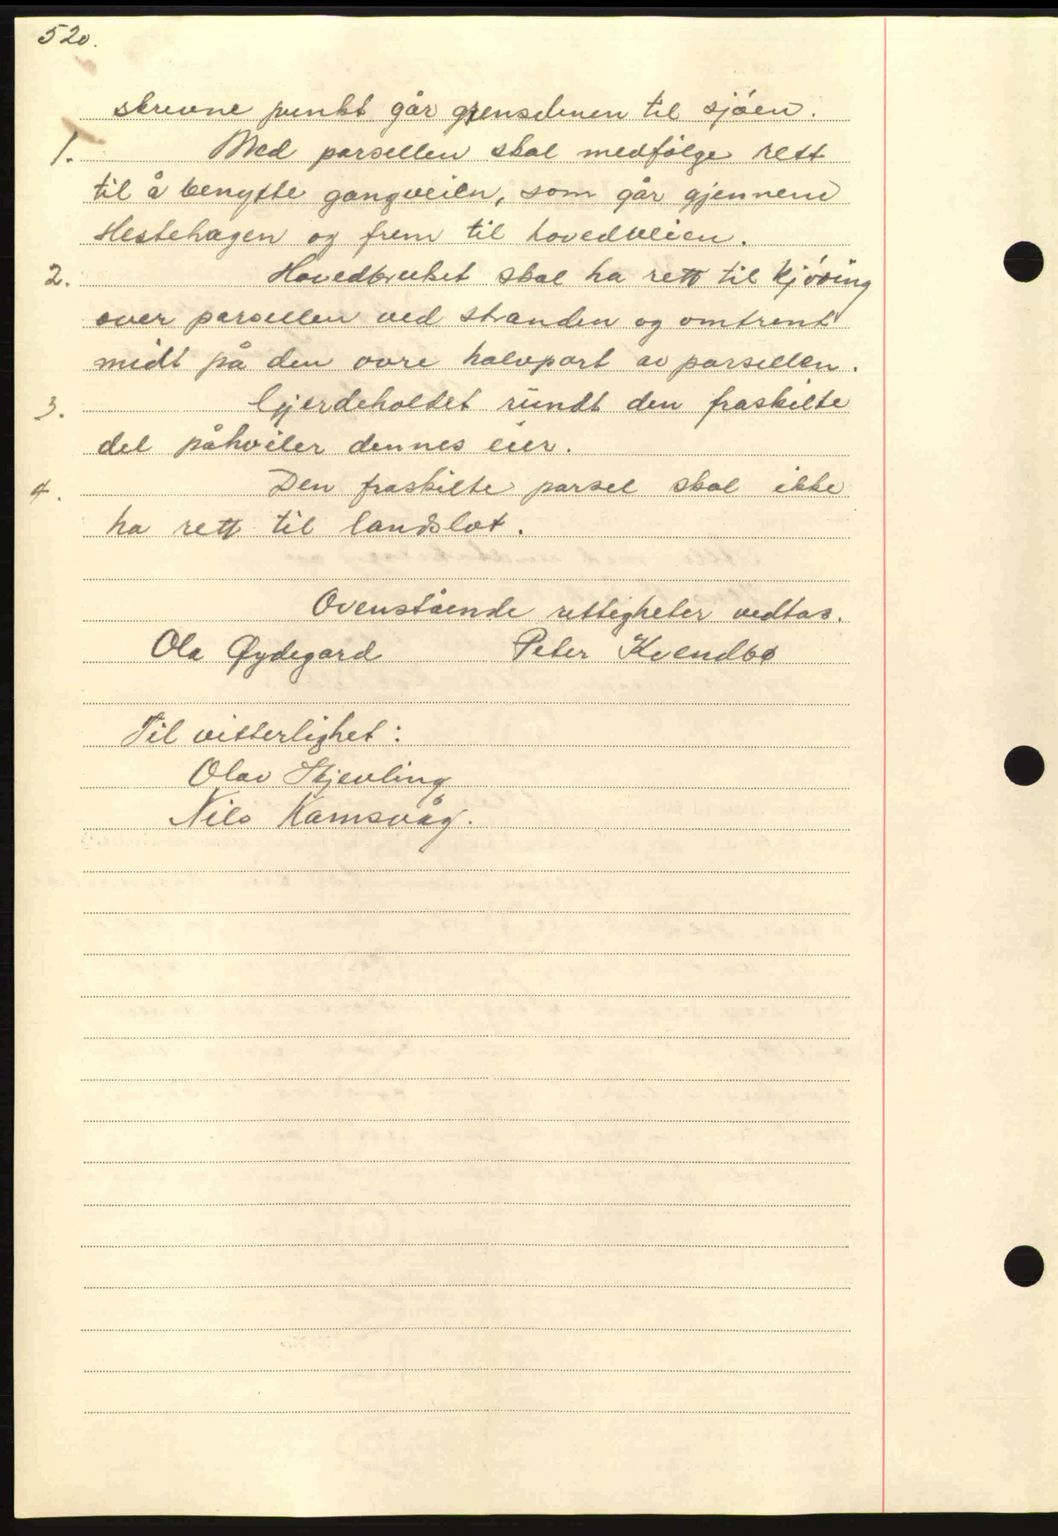 520.
skrevne punkt går grenselinen til sjóen.
1. Med parsellen skal medfölge rett
til å benytte gangveien, som går gjennem
Hestehagen og frem til hovedveien.
2. Hovedbruket skal ha rett til kjöring
over parsellen ved stranden og omtrent
midt på den övre halvpart av parsellen.
3. Gjerdeholdet rundt den fraskilte
del påhviler dennes eier.
4. Den fraskilte parsel skal ikke
ha rett til landslot.
Ovenstående rettigheter vedtas.
Ola Øydegard Peter Kvendbø
Til vitterlighet:
Olav Skjevling
Nils Ramsvåg.